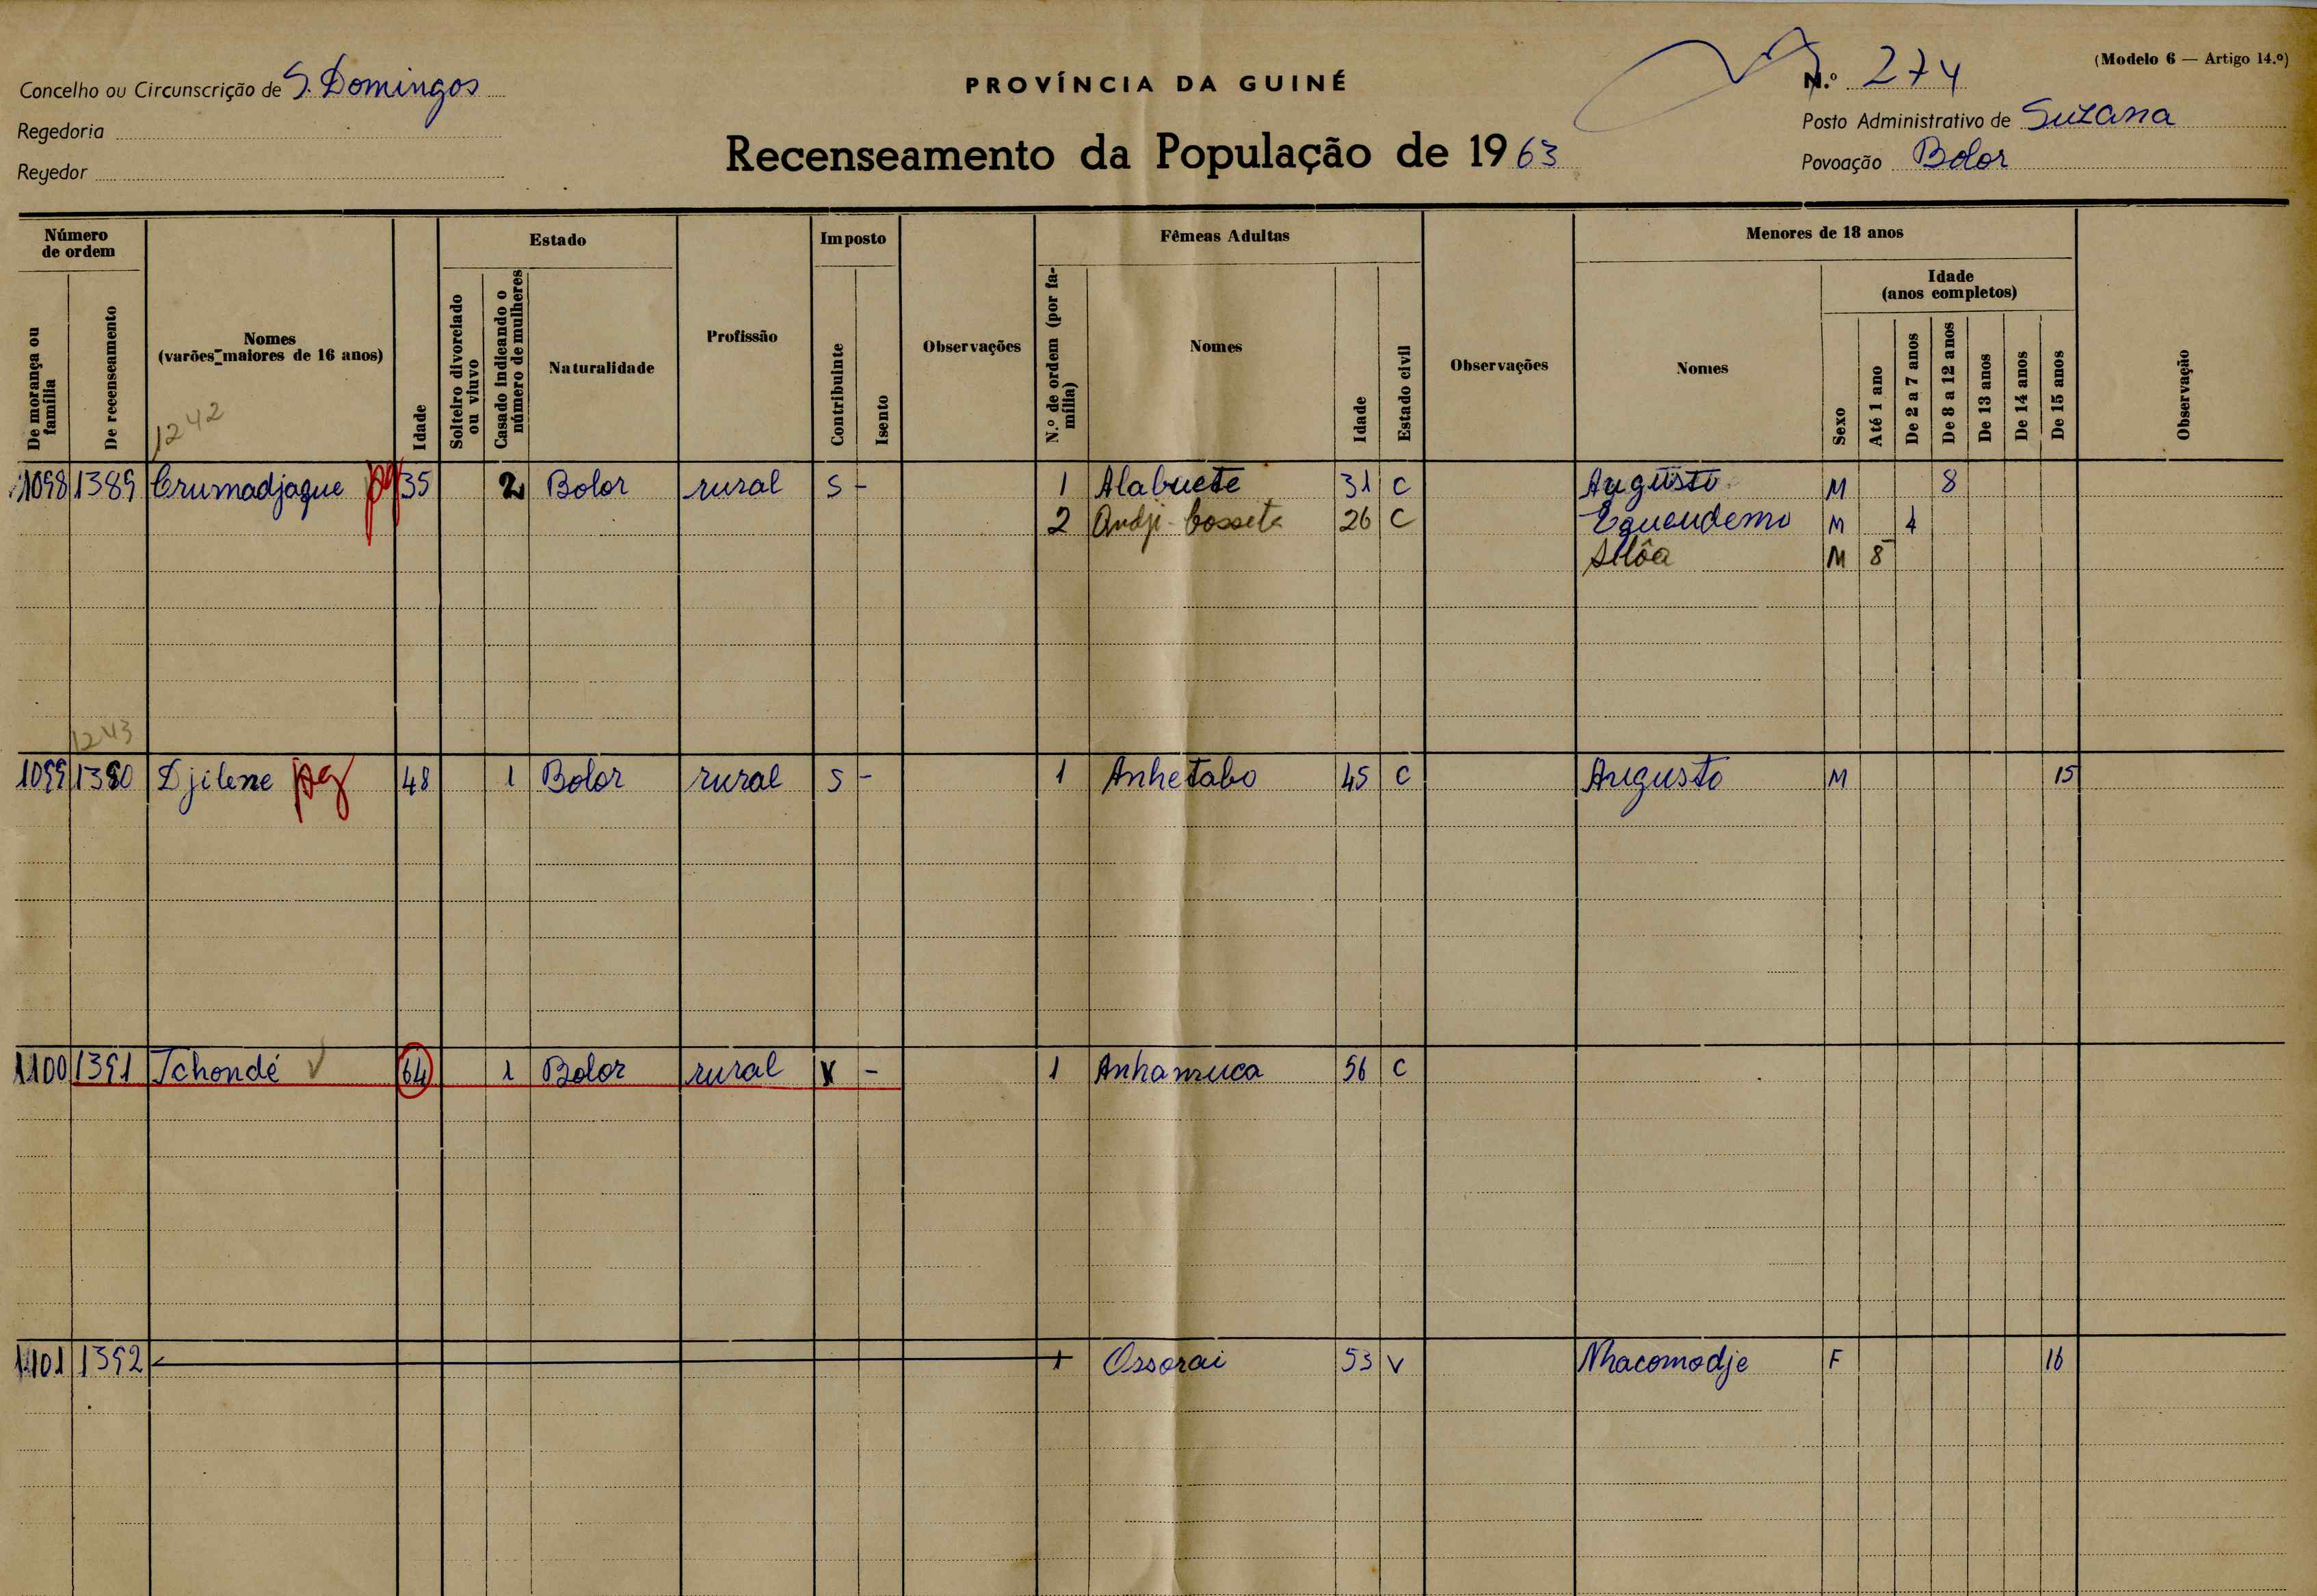 (Modelo 6 — Artigo 14.º)
Concelho ou Circunscrição de S. Domingos
PROVÍNCIA DA GUINÉ
N.º 274
Regedoria
Posto Administrativo de Suzana
Recenseamento da População de 1963
Reyedor
Povoação Bolor
Número de ordem
De morança ou família
De recenseamento
Nomes
(varões maiores de 16 anos)
1242
Idade
Estado
Solteiro divorciado ou viuvo
Casado indicando o número de mulheres
Naturalidade
Profissão
Imposto
Contribuinte
Isento
Observações
Fêmeas Adultas
N.º de ordem (por família)
Nomes
Idade
Estado civil
Observações
Menores de 18 anos
Nomes
Sexo
Idade
(anos completos)
Até 1 ano
De 2 a 7 anos
De 8 a 12 anos
De 13 anos
De 14 anos
De 15 anos
Observação
1098 1389 Crumadjaque pg 35 2 Bolor rural S - 1 Alabuete 31 C Augusto M 8
2 Andji-Cosseta 26 C Equendemo M 4
M 8
1243
1099 1390 Djilene pg 48 1 Bolor rural S - 1 Anhetabo 45 C Augusto M 15
1100 1391 Tchondé 64 1 Bolor rural - 1 Anhamuca 56 C
1101 1392 1 Ossorai 53 V Nhacomodje F 16